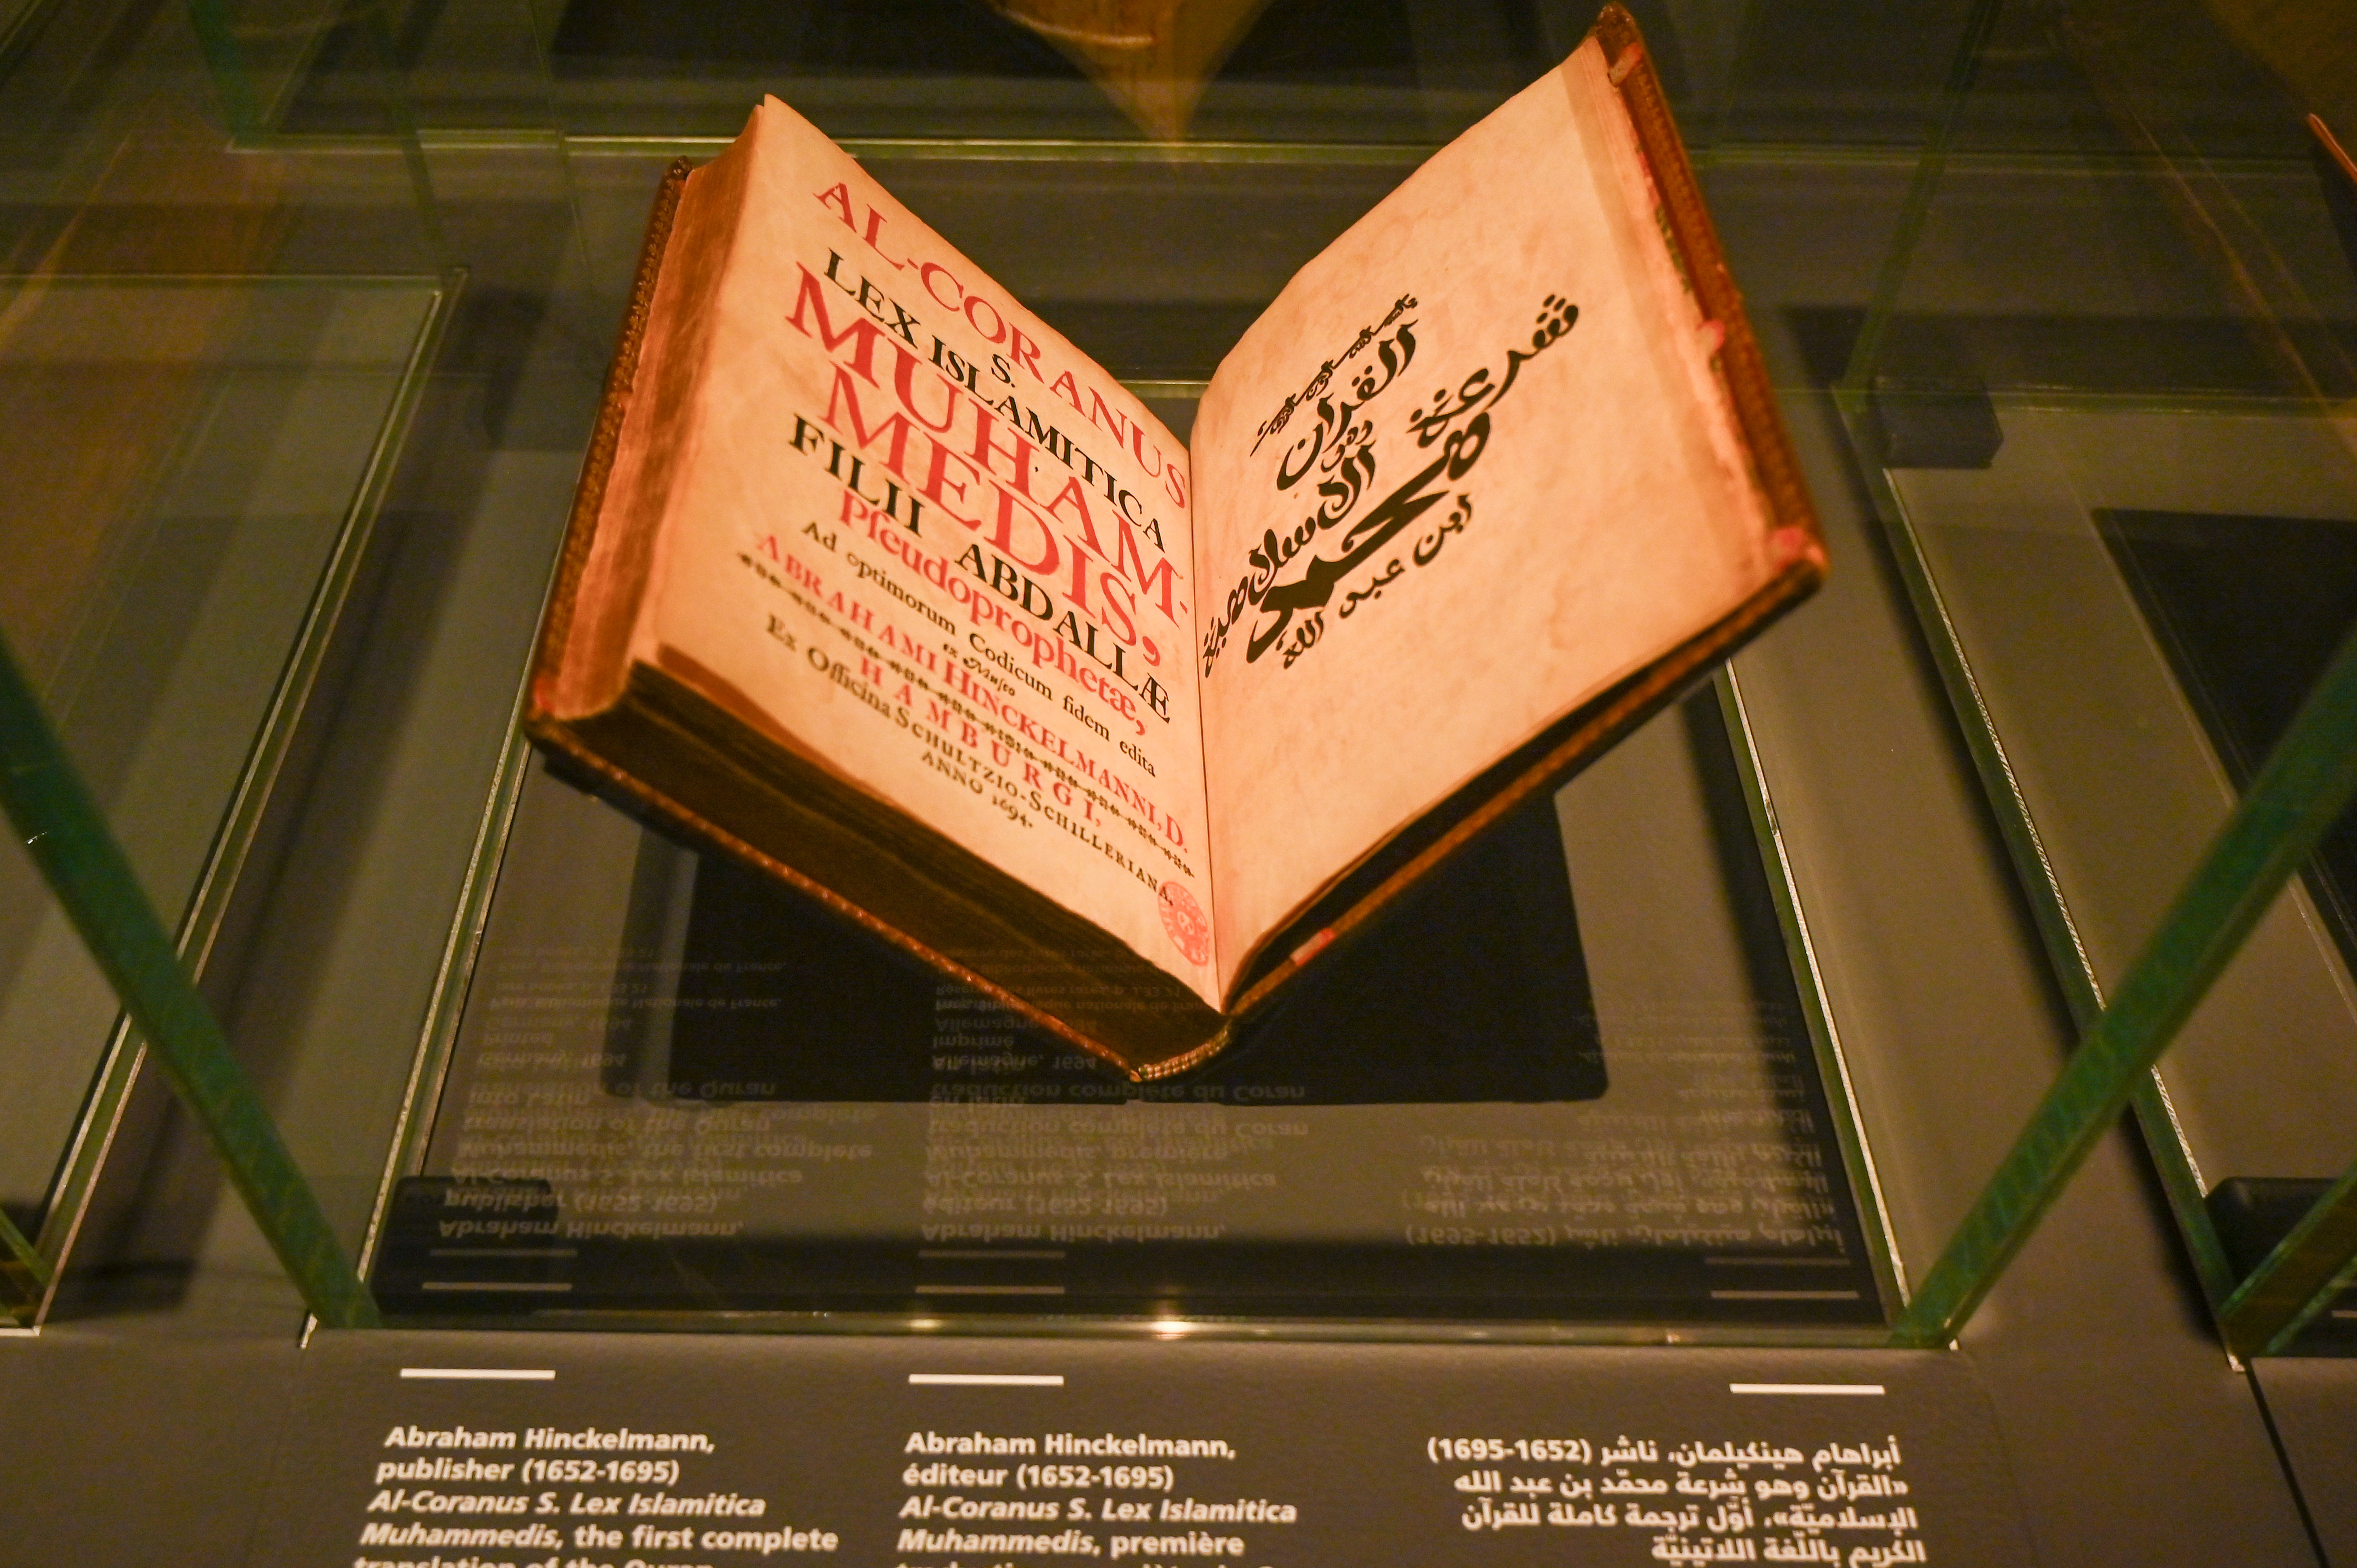 AL-CORANUS
S.
LEX ISLAMITICA
MUHAM-
MEDIS,
FILII ABDALLÆ
Pſeudoprophetæ,
Ad optimorum Codicum fidem edita
ex Muſeo
ABRAHAMI HINCKELMANNI, D.
HAMBURGI,
Ex Officina SCHULTZIO-SCHILLERIANA,
ANNO 1694.
القران
شرعة
الاسلامية
محمد
ابن عبد الله
Abraham Hinckelmann,
publisher (1652-1695)
Al-Coranus S. Lex Islamitica
Muhammedis, the first complete
translation of the Quran
Abraham Hinckelmann,
éditeur (1652-1695)
Al-Coranus S. Lex Islamitica
Muhammedis, première
أبراهام هينكيلمان، ناشر (1652-1695)
«القرآن وهو شرعة محمّد بن عبد الله
الإسلاميّة»، أوّل ترجمة كاملة للقرآن
الكريم باللّغة اللاتينيّة